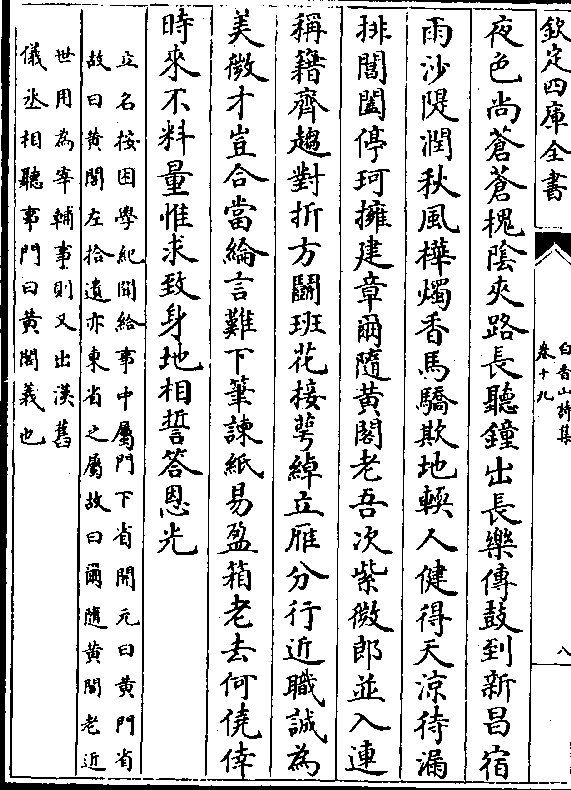 欽定四庫全書
白香山詩集
卷十九
八
夜色尚蒼蒼槐隂夾路長聽鐘出長樂傳鼓到新昌宿
雨沙隄潤秋風樺燭香馬驕欺地輭人健得天涼待漏
排閶闔停珂擁建章爾隨黃閣老吾次紫微郎並入連
稱籍齊趨對折方鬬班花接萼綽立雁分行近職誠為
美微才豈合當綸言難下筆諫紙易盈箱老去何僥倖
時來不料量惟求致身地相誓答恩光
立名按困學紀聞給事中屬門下省開元曰黃門省
故曰黃閣左拾遺亦東省之屬故曰爾隨黃閣老近
世用為宰輔事則又出漢舊
儀丞相聽事門曰黃閣義也